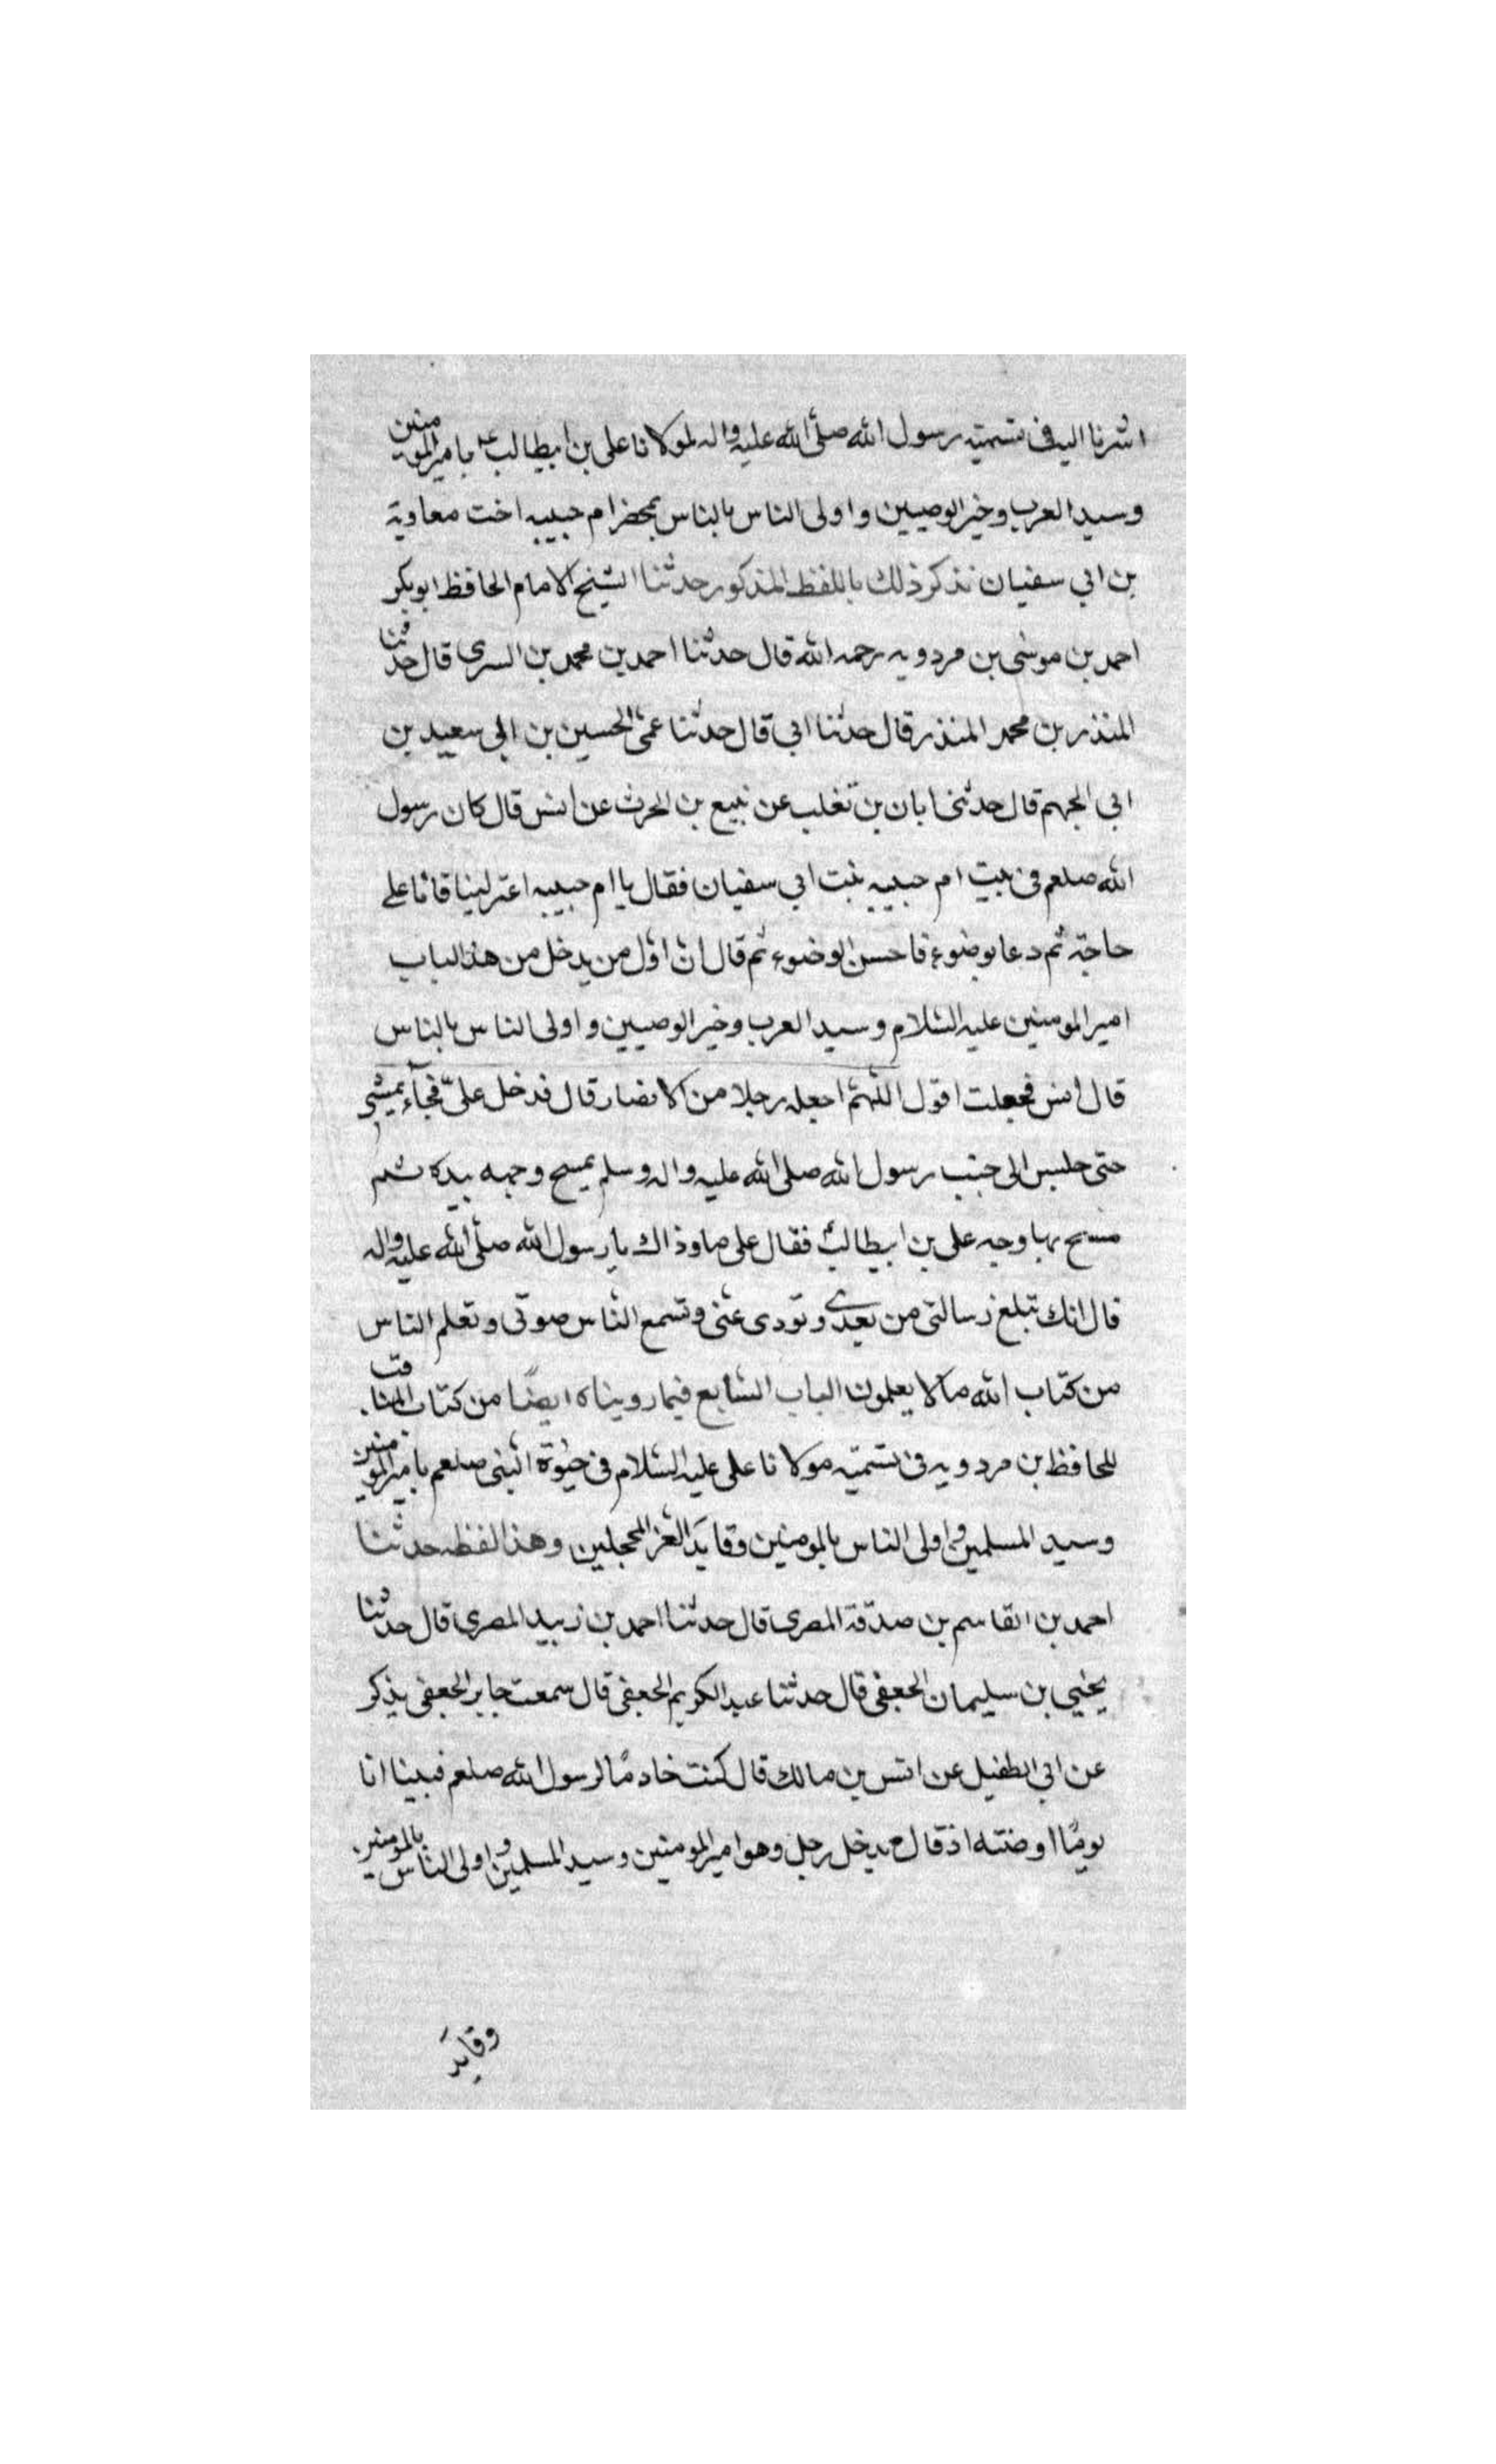 اشرنا اليه في تسميته رسول الله صلى الله عليه واله لمولانا علي بن ابيطالب ع بامير المومنين
وسيد العرب وخير الوصيين واولى الناس بالناس بمحضر ام حبيبه اخت معاوية
بن ابي سفيان نذكر ذلك باللفظ المذكور حدثنا الشيخ الامام الحافظ ابوبكر
احمد بن موسى بن مردويه رحمه الله قال حدثنا احمد بن محمد بن السرى قال حدثنا
المنذر بن محمد المنذر قال حدثنا ابي قال حدثنا عمى الحسين بن ابي سعيد بن
ابي الجهم قال حدثنى ابان بن تغلب عن نبيع بن الحرث عن انس قال كان رسول
الله صلعم في بيت ام حبيبه بنت ابي سفيان فقال يا ام حبيبه اعتزلينا فانا على
حاجة ثم دعا بوضوء فاحسن الوضوء ثم قال ان اول من يدخل من هذا الباب
امير المومنين عليه السلام وسيد العرب وخير الوصيين واولى الناس بالناس
قال انس فجعلت اقول اللهم اجعله رجلا من الانصار قال فدخل على فجآء يمشى
حتى جلس الى جنب رسول الله صلى الله عليه واله وسلم يمسح وجهه بيده ثم
مسح بها وجه على بن ابيطالب فقال على وما ذاك يا رسول الله صلى الله عليه واله
قال انك تبلغ رسالتى من بعدى وتودى عنى وتسمع الناس صوتى وتعلم الناس
من كتاب الله مالا يعلمون الباب السابع فيما رويناه ايضا من كتاب المناقب
للحافظ بن مردويه في تسميته مولانا على عليه السلام في حيوة النبى صلعم بامير المومنين
وسيد المسلمين واولى الناس بالمومنين وقايد الغر المحجلين وهذا لفظه حدثنا
احمد بن القاسم بن صدقة المصرى قال حدثنا احمد بن زبيد المصرى قال حدثنا
يحيي بن سليمان الجعفى قال حدثنا عبد الكريم الجعفى قال سمعت جابر الجعفى يذكر
عن ابي الطفيل عن انس بن مالك قال كنت خادما لرسول الله صلعم فبينا انا
يوما اوضئه اذ قال يدخل رجل وهو امير المومنين وسيد المسلمين واولى الناس بالمومنين
وقايد